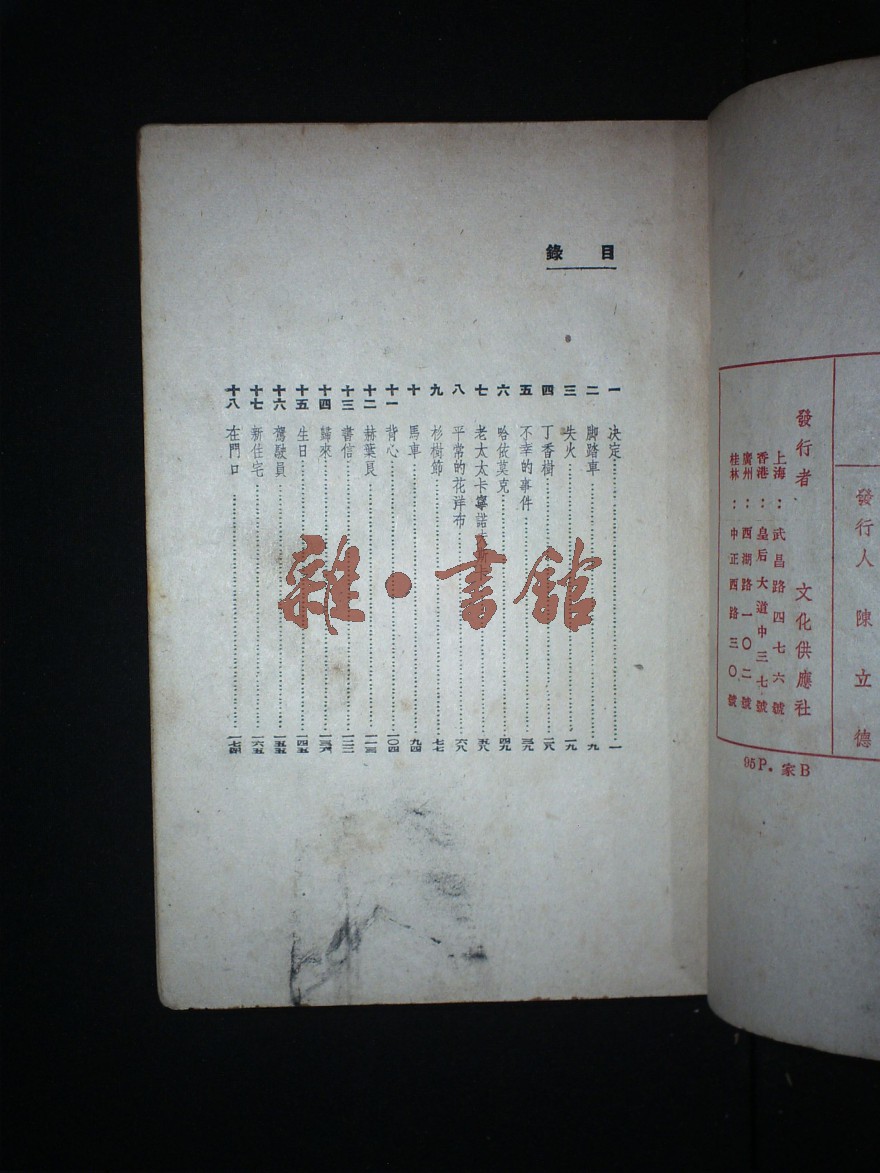 發行人 陳立德
發行者 文化供應社
上海：武昌路四七六號
香港：皇后大道中三七號
廣州：西湖路一〇二號
桂林：中正西路三〇號
95P. 家B
目錄
一 決定 一
二 脚踏車 九
三 失火 一九
四 丁香樹 二八
五 不幸的事件 三九
六 哈依莫克 四九
七 老太太卡寧諾 五八
八 平常的花洋布 六八
九 杉樹節 七七
十 馬車 九四
十一 背心 一〇四
十二 赫葉良 一一三
十三 書信 一二二
十四 歸來 一三六
十五 生日 一四五
十六 駕駛員 一五五
十七 新住宅 一六五
十八 在門口 一七四
雜·書館